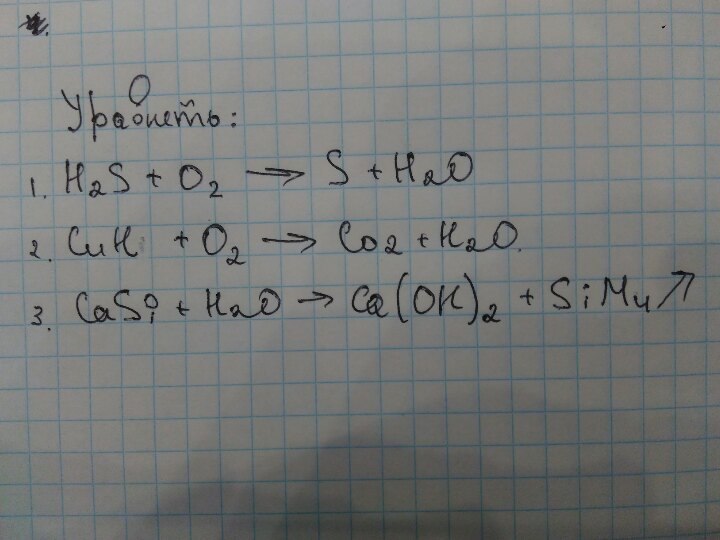 Уравнеть:
1. H₂S + O₂ → S + H₂O
2. CuH + O₂ → Co₂ + H₂O.
3. CaSi + H₂O → Ca(OH)₂ + SiH₄↗